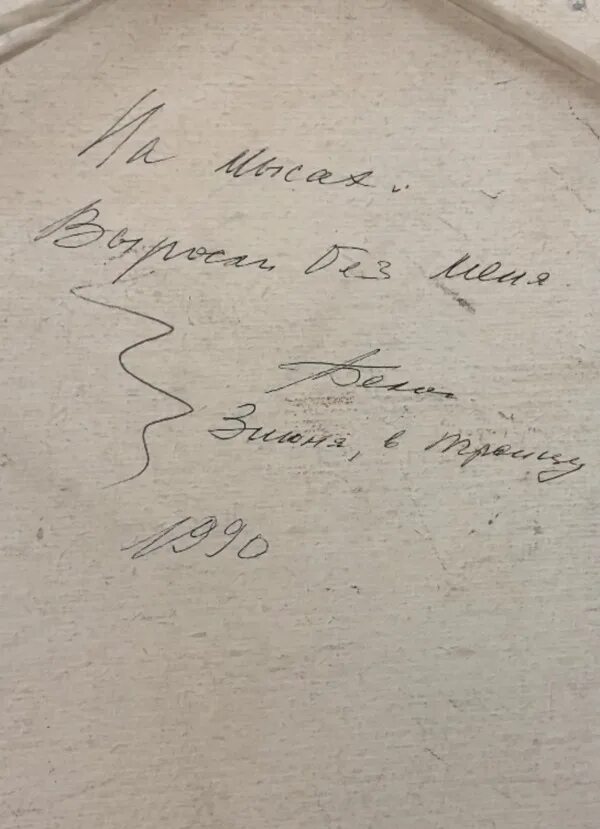 На мысах.
Выросли без меня
3 июня, в троицу
1990